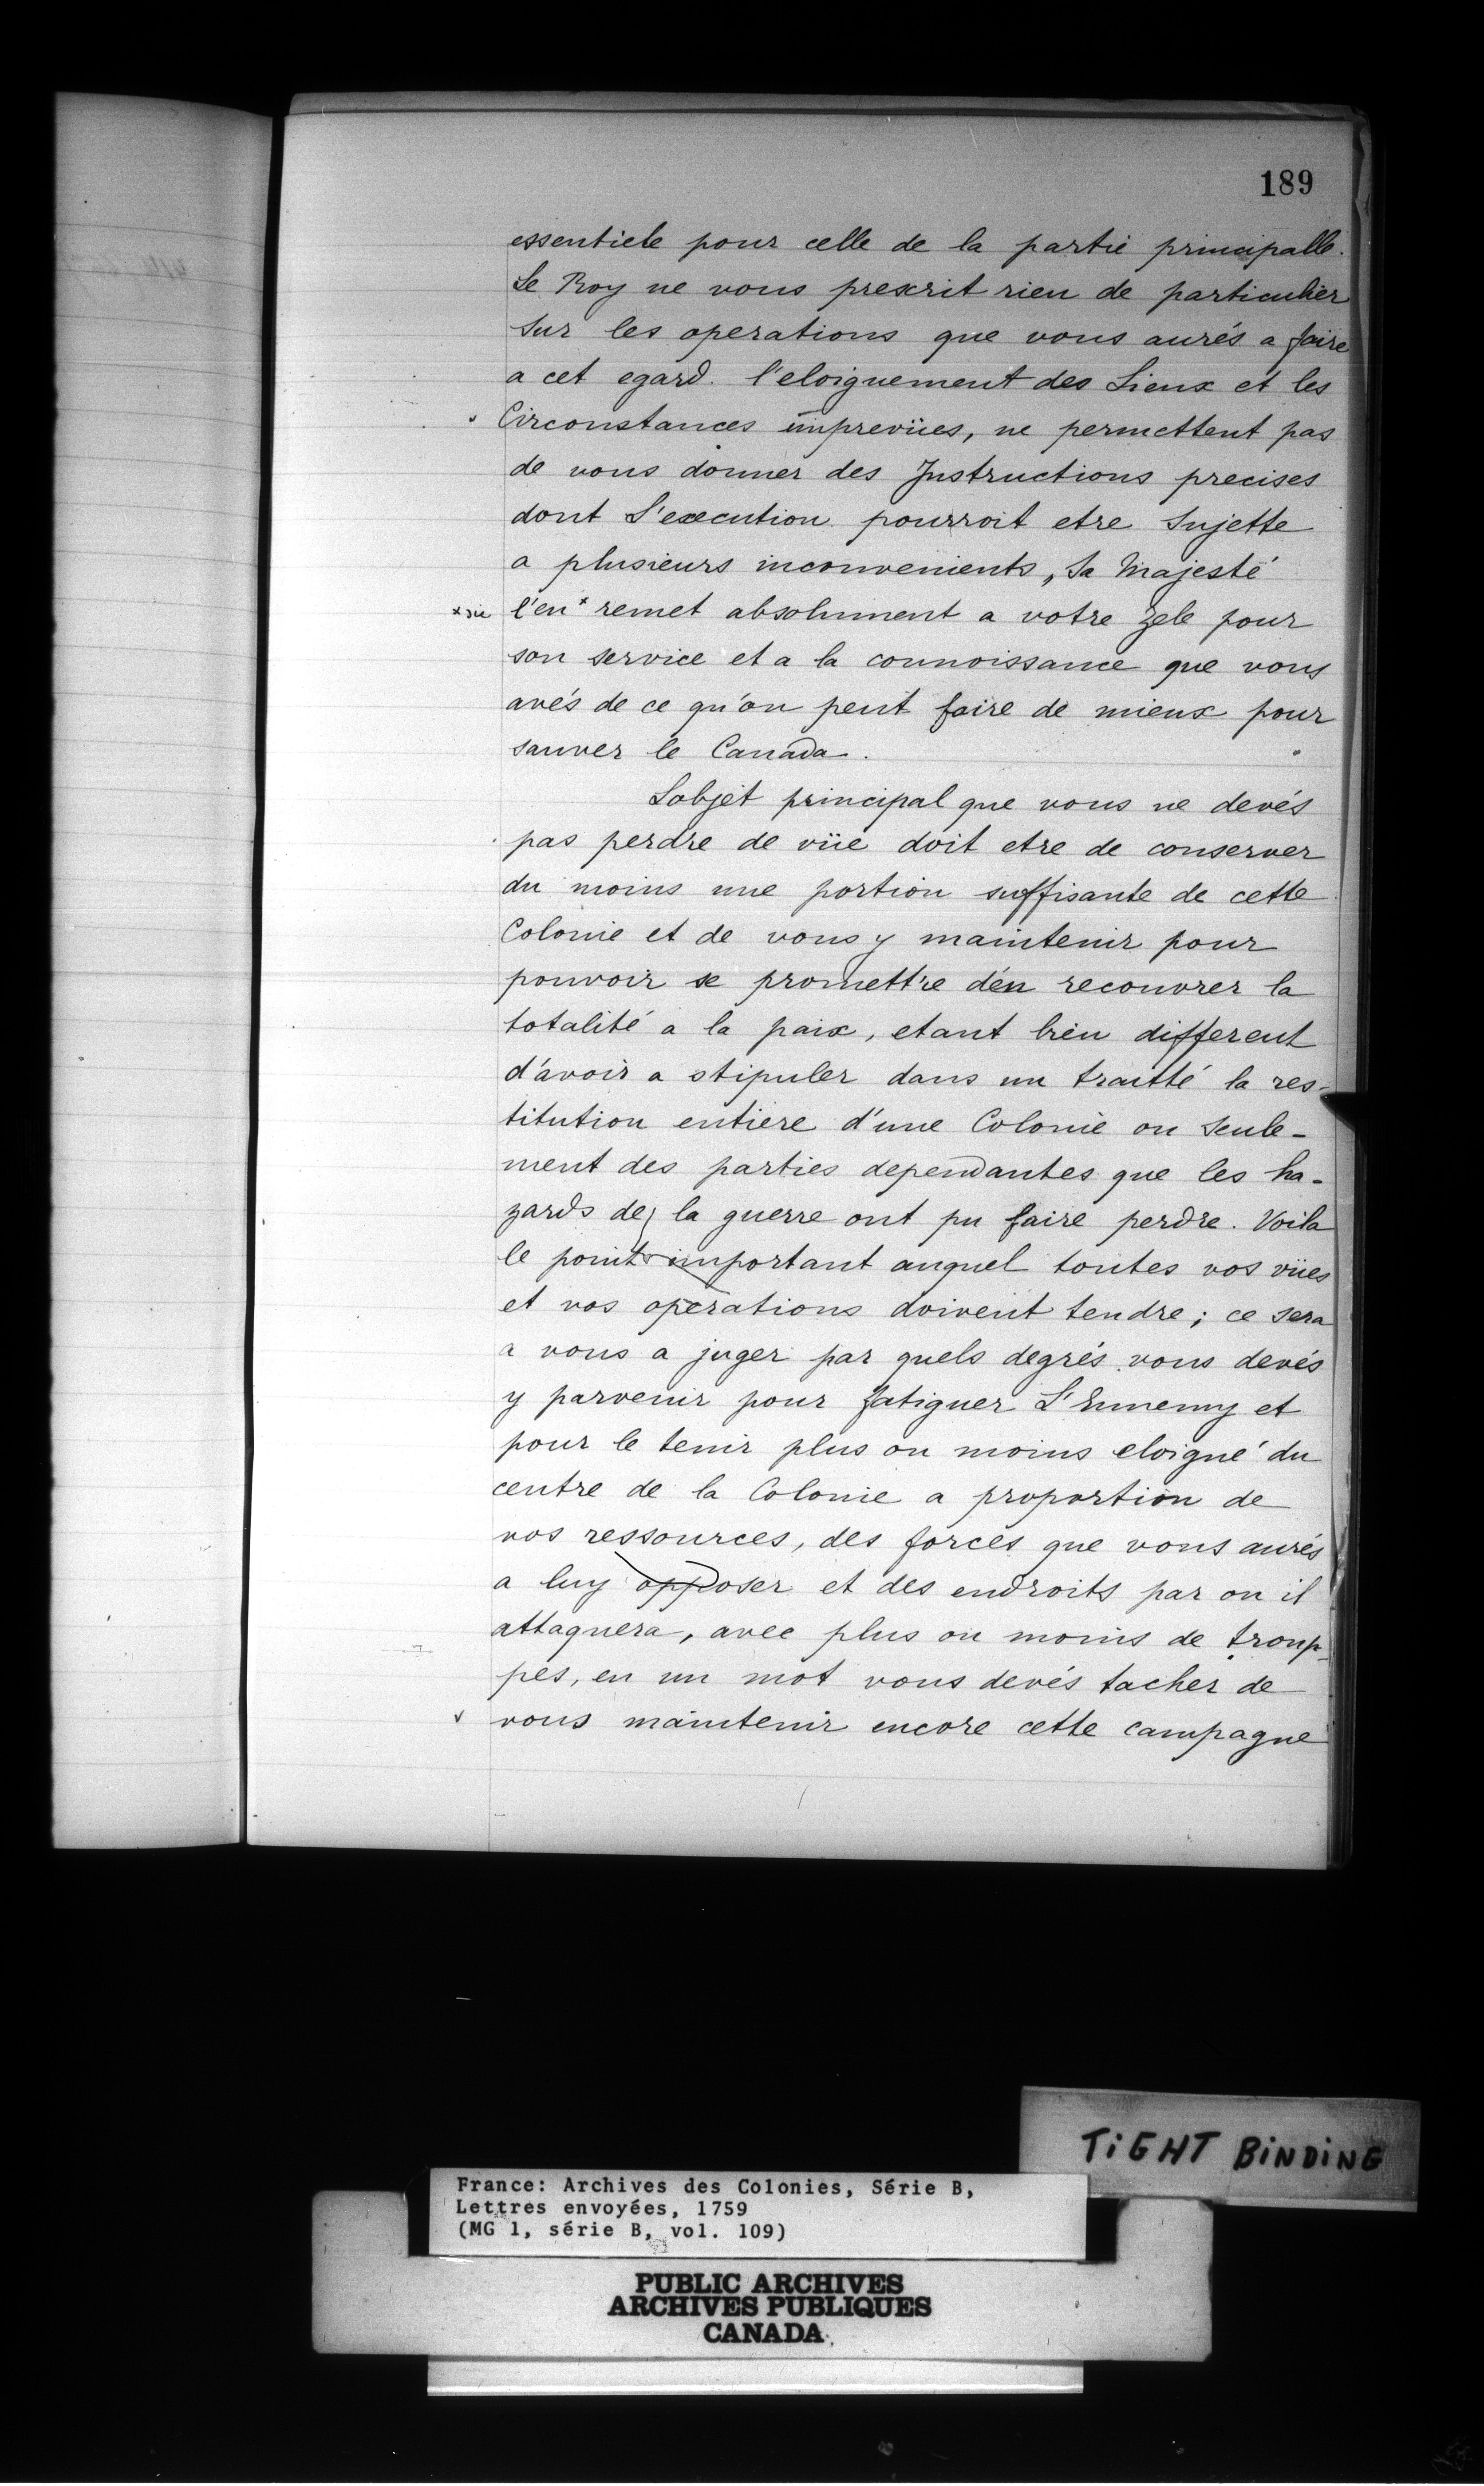 189
essentiele pour celle de la partie principalle.
Le Roy ne vous prescrit rien de particulier
sur les operations que vous aurés a faire
a cet egard. l'eloignement des Lieux et les
Circonstances imprevües, ne permettent pas
de vous donner des Instructions precises
dont l'execution pourroit etre Sujette
a plusieurs inconvenients, Sa Majesté
l'en x remet absolument a votre zele pour
son service et a la connoissance que vous
avés de ce qu'on peut faire de mieux pour
sauver le Canada.
Lobjet principal que vous ne devés
pas perdre de vüe doit etre de conserver
du moins une portion suffisante de cette
Colonie et de vous y maintenir pour
pouvoir se promettre d'en recouvrer la
totalité a la paix, etant bien different
d'avoir a stipuler dans un traitté la res-
titution entiere d'une Colonie ou seule-
ment des parties dependantes que les ha-
zards de la guerre ont pu faire perdre. Voila
le point important auquel toutes vos vües
et vos operations doivent tendre; ce sera
a vous a juger par quels degrés vous devés
y parvenir pour fatiguer L'Ennemy et
pour le tenir plus ou moins eloigné du
centre de la Colonie a proportion de
vos ressources, des forces que vous aurés
a luy opposer et des endroits par ou il
attaquera, avec plus ou moins de troup-
pes, en un mot vous devés tacher de
vous maintenir encore cette campagne
TIGHT BINDING
France: Archives des Colonies, Série B,
Lettres envoyées, 1759
(MG 1, série B, vol. 109)
PUBLIC ARCHIVES
ARCHIVES PUBLIQUES
CANADA